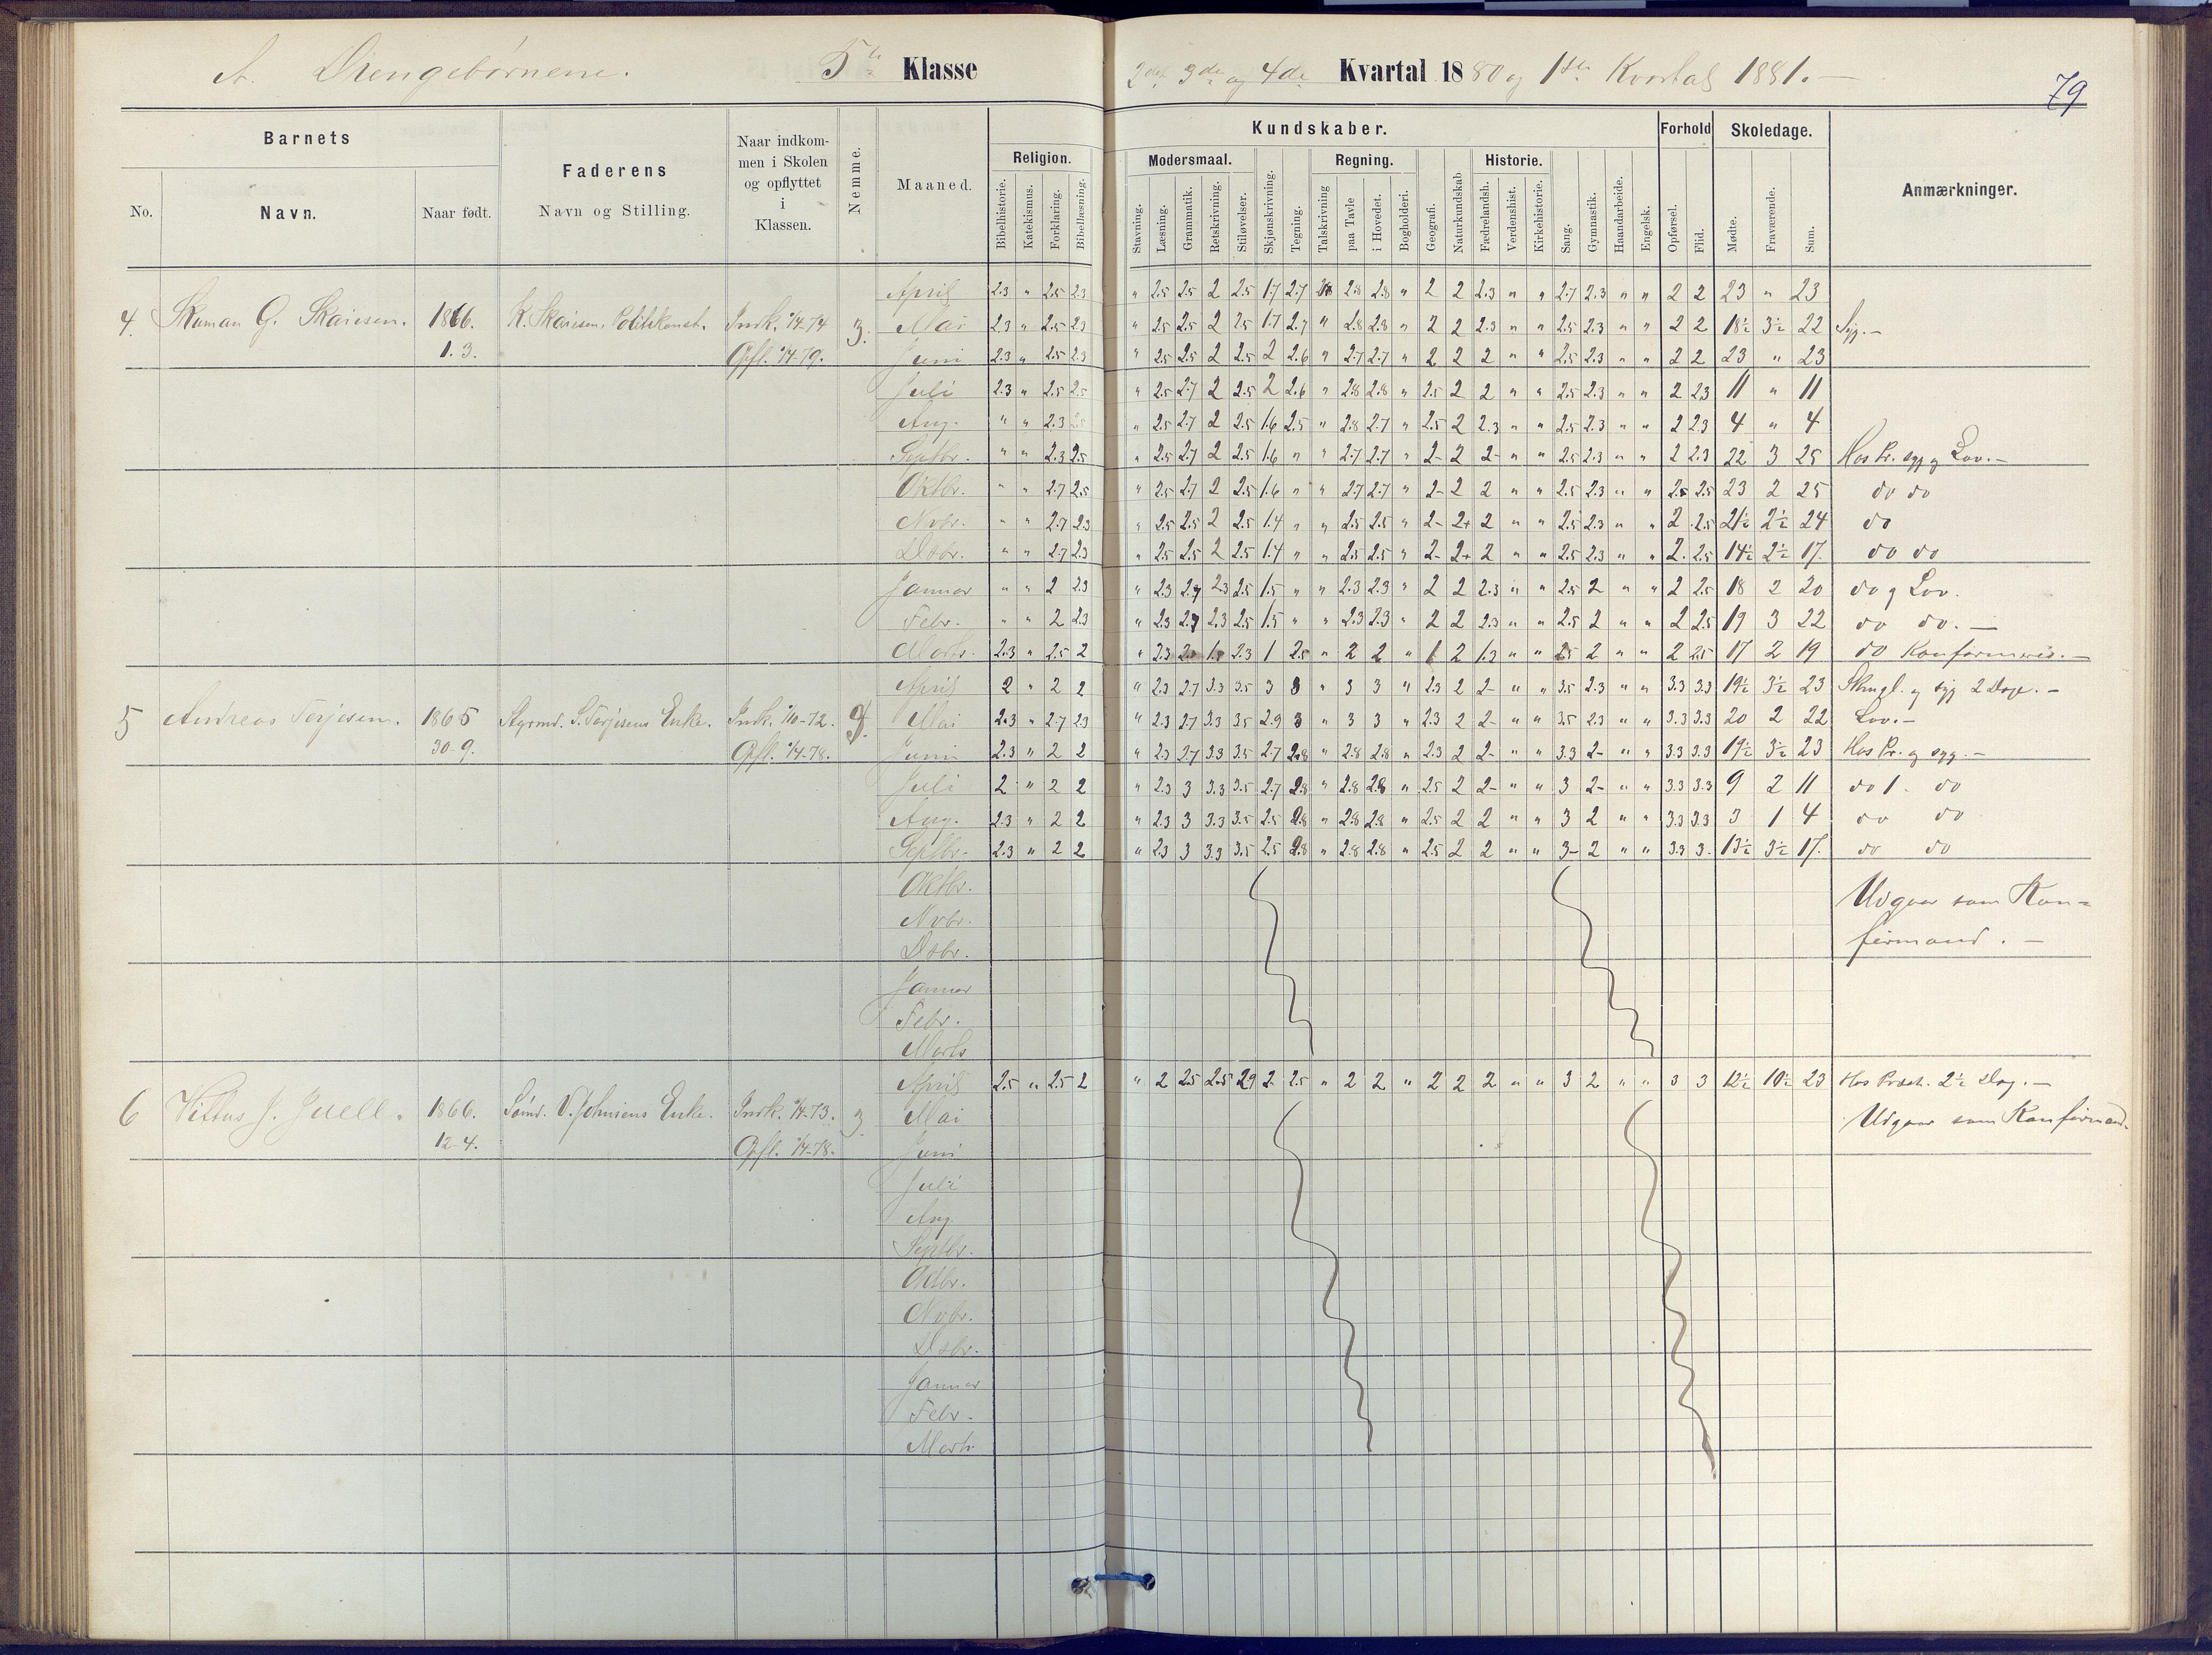 A. Drengebørnene. 5te Klasse
2det 3de og 4de Kvartal 1880 og 1ste Kvartal 1881. —
79
Barnets
No.
Navn.
Naar født.
Faderens
Navn og Stilling.
Naar indkom-
men i Skolen
og opflyttet
i
Klassen.
Nemme.
Maaned.
Kundskaber.
Religion.
Bibelhistorie.
Katekismus.
Forklaring.
Bibellæsning.
Modersmaal.
Stavning.
Læsning.
Grammatik.
Retskrivning.
Stiløvelser.
Skjønskrivning.
Tegning.
Regning.
Talskrivning
paa Tavle
i Hovedet.
Bogholderi.
Geografi.
Naturkundskab
Historie.
Fædrelandsh.
Verdenshist.
Kirkehistorie.
Sang.
Gymnastik.
Haandarbeide.
Engelsk.
Forhold
Opførsel.
Flid.
Skoledage.
Mødte.
Fraværende.
Sum.
Anmærkninger.
4. 1866. 1.3. Indk. 1/4-74 Opfl. 1/4-79. 3.
April 2.3 " 2.5 2.3 " 2.5 2.5 2 2.5 1.7 2.7 2.8 2.8 " 2 2 2.3 " " 2.7 2.3 " " 2 2 23 " 23
Mai 2.3 " 2.5 2.3 " 2.5 2.5 2 2.5 1.7 2.7 " 2.8 2.8 " 2 2 2.3 " " 2.5 2.3 " " 2 2 18½ 3½ 22 Syg. —
Juni 2.3 " 2.5 2.3 " 2.5 2.5 2 2.5 2 2.6 " 2.7 2.7 " 2 2 2 " " 2.5 2.3 " " 2 2 23 " 23
Juli 2.3 " 2.5 2.5 " 2.5 2.7 2 2.5 2 2.6 " 2.8 2.8 " 2.5 2 2 " " 2.5 2.3 " " 2 2.3 11 " 11
Aug. " " 2.3 2.5 " 2.5 2.7 2 2.5 1.6 2.5 " 2.8 2.7 " 2.5 2 2.3 " " 2.5 2.3 " " 2 2.3 4 " 4
Septbr. " " 2.3 2.5 " 2.5 2.7 2 2.5 1.6 " " 2.7 2.7 " 2- 2 2- " " 2.5 2.3 " " 2 2.3 22 3 25 Hos Pr. syg og Lov. —
Oktbr. " " 2.7 2.5 " 2.5 2.7 2 2.5 1.6 " " 2.7 2.7 " 2- 2 2 " " 2.5 2.3 " " 2.5 2.5 23 2 25 do do
Nvbr. " " 2.7 2.3 " 2.5 2.5 2 2.5 1.4 " " 2.5 2.5 " 2- 2+ 2 " " 2.5 2.3 " " 2 2.5 21½ 2½ 24 do
Dsbr. " " 2.7 2.3 " 2.5 2.5 2 2.5 1.4 " " 2.5 2.5 " 2- 2+ 2 " " 2.5 2.3 " " 2. 2.5 14½ 2½ 17. do do
Januar " " 2 2.3 " 2.3 2.7 2.3 2.5 1.5 " " 2.3 2.3 " 2 2 2.3 " " 2.5 2 " " 2 2.5 18 2 20 do og Lov.
Febr. " " 2 2.3 " 2.3 2.7 2.3 2.5 1.5 " " 2.3 2.3 " 2 2 2.3 " " 2.5 2 " " 2 2.5 19 3 22 do do. —
Marts. 2.3 " 2.5 2 " 2.3 2.3 1 2.5 " 2 2 " 1 2 1.3 " " 2.5 2 " " 2 2.5 17 2 19 do Konfirmeres. —
5 Andreas Torjesen. 1865 30-9. Styrmd. S. Torjesens Enke. Indk. 1/10-72. Opfl. 1/4-78.
April 2 " 2 2 " 2.3 2.7 3.3 3.5 3 3 " 3 3 " 2.3 2 2- " " 3.5 2.3 " " 3.3 3.3 19½ 3½ 23 og syg 2 Dage. —
Mai 2.3 " 2.7 2.3 " 2.3 2.7 3.3 3.5 2.9 3 " 3 3 " 2.3 2 2- " " 3.5 2.3 " " 3.3 3.3 20 2 22 Lov. —
Juni 2.3 " 2 2 " 2.3 2.7 3.3 3.5 2.7 2.8 " 2.8 2.8 " 2.3 2 2- " " 3.3 2- " " 3.3 3.3 19½ 3½ 23 Hos Pr. og syg. —
Juli 2 " 2 2 " 2.3 3 3.3 3.5 2.7 2.8 " 2.8 2.8 " 2.5 2 2- " " 3 2- " " 3.3 3.3 9 2 11 do 1. do
Aug. 2.3 " 2 2 " 2.3 3 3.3 3.5 2.5 2.8 " 2.8 2.8 " 2.5 2 2 " " 3 2 " " 3.3 3.3 3 1 4 do do
Septbr. 2.3 " 2 2 " 2.3 3 3.3 3.5 2.5 2.8 " 2.8 2.8 " 2.5 2 2 " " 3- 2 " " 3.3 3. 13½ 3½ 17. do do
Oktbr. Udgaar som Kon=
Nvbr.
Dsbr. firmand. —
Januar
Febr.
Marts
6 Vittus J. Juell. 1866. 12-4. Sømd. V. Johnsens Enke. Indk. 1/4-73. Opfl. 1/4-78. 3.
April 2.5 " 2.5 2 " 2 2.5 2.5 2.9 2- 2.5 " 2 2 " 2 2 2 " " 3 2 " " 3 3 12½ 10½ 23 Hos Præst. 2½ Dag. —
Mai Udgaar som Konfirmand.
Juni
Juli
Aug
Septbr.
Oktbr.
Nvbr.
Dsbr.
Januar
Febr.
Marts